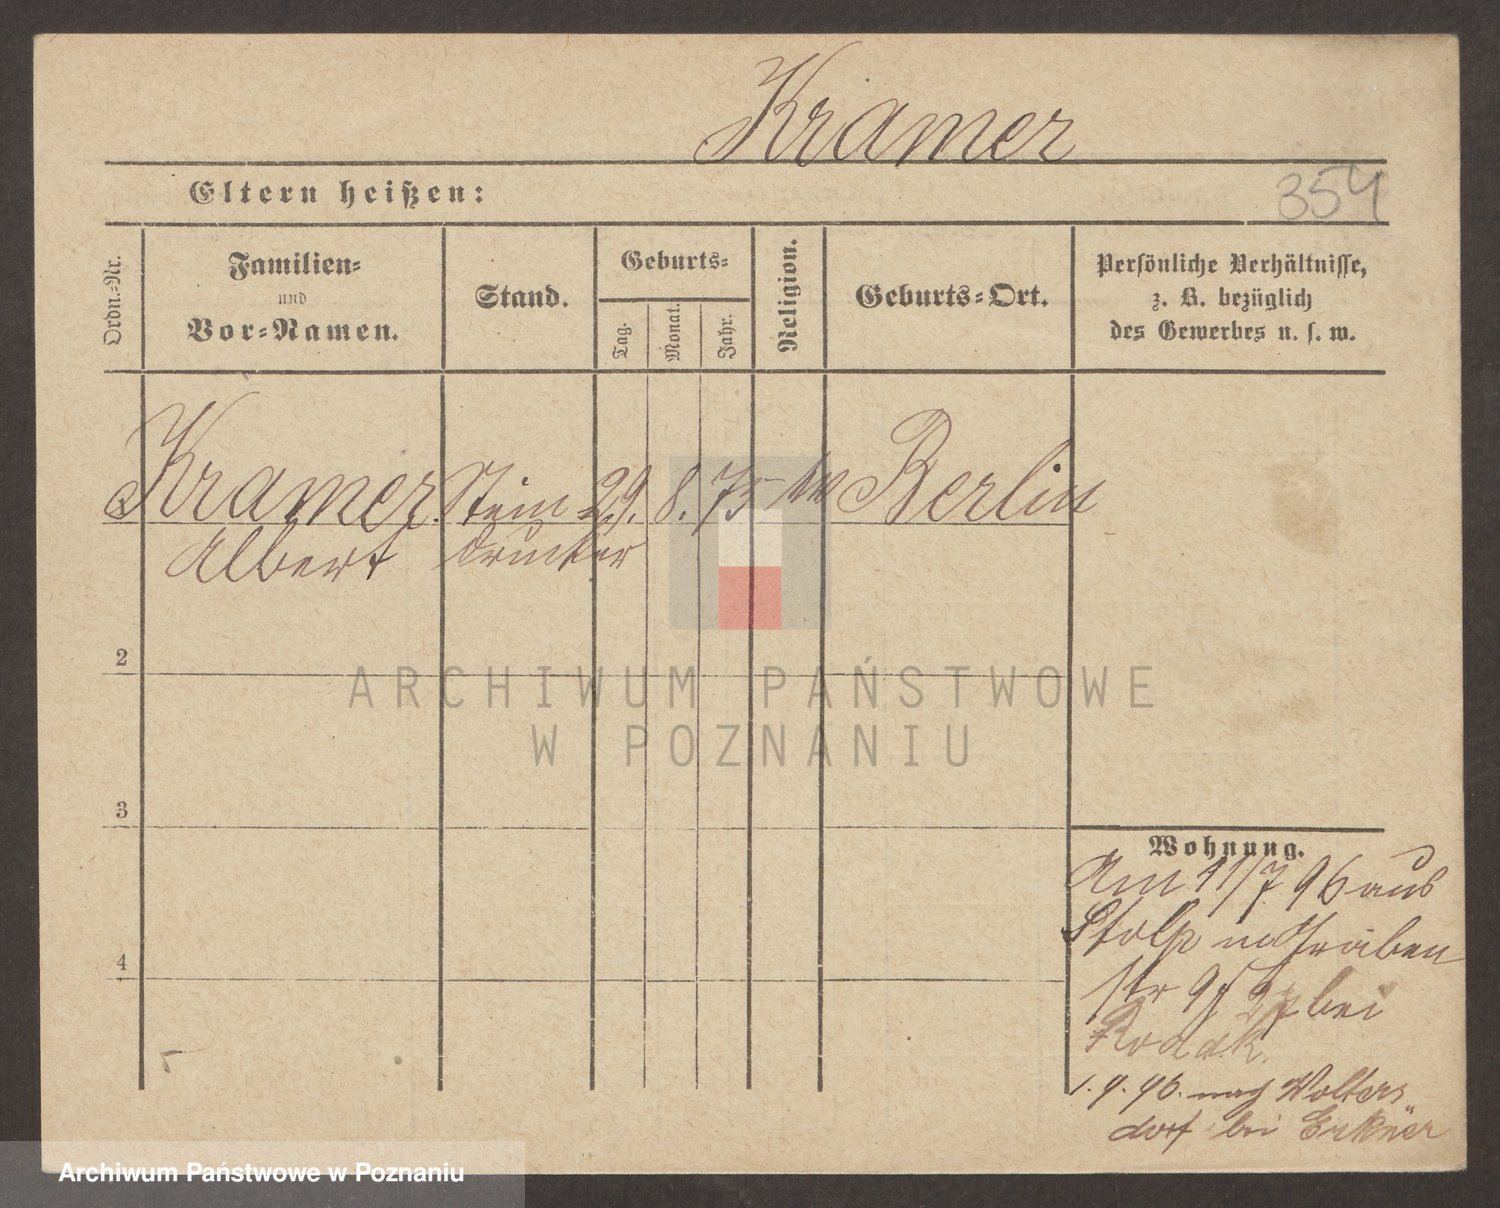 Kramer
Eltern heißen:
354
Ordn.=Nr.
Familien=
und
Vor=Namen.
Stand.
Geburts=
Tag.
Monat.
Jahr.
Religion.
Geburts=Ort.
Persönliche Verhältnisse,
z. B. bezüglich
des Gewerbes u. s. w.
Kramer Stein 29. 8. 75 Berlin
Albert drucker
2
3
4
Wohnung.
Am 11/7 96 aus
Stolp n Graben
str bei
1. 9. 96. nach Wolters
dorf bei Erkner
ARCHIWUM PAŃSTWOWE
W POZNANIU
Archiwum Państwowe w Poznaniu